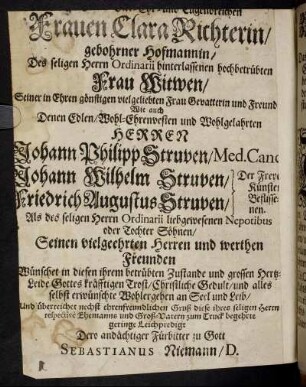 Frauen Clara Richterin/
gebohrner Hofmannin/
Des seligen Herrn Ordinarii hinterlassenen hochbetrübten
Frau Witwen/
Seiner in Ehren günstigen vielgeliebten Frau Gevatterin und Freund
Wie auch
Denen Edlen/Wohl-Ehrenvesten und Wohlgelahrten
HERREN
Johann Philipp Struven/Med.Cand
Johann Wilhelm Struven/
Friedrich Augustus Struven/
Der Freyen
Künste
Beflisse-
nen.
Als des seligen Herrn Ordinarii liebgewesenen Nepotibus
oder Tochter Söhnen/
Seinen vielgeehrten Herren und werthen
Freunden
Wünschet in diesen ihrem betrübten Zustande und grossen Hertz-
Leide Gottes kräfftigen Trost/Christliche Gedult/und alles
selbst erwünschte Wohlergehen an Seel und Leib/
Und überreichet nechst ehrenfreundlichen Gruß diese ihres seligen Herrn
respective Ehemanns und Groß-Vatern zum Truck begehrte
geringe Leichpredigt
Dero andächtiger Fürbitter zu Gott
SEBASTIANUS Niemann/D.